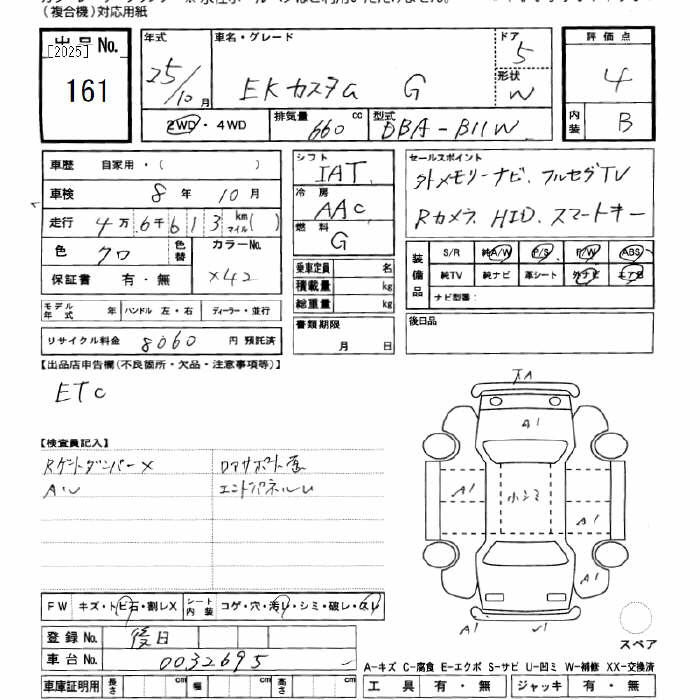 (複合機)対応用紙
出品No.
[2025]
161
年式
25/10月
車名・グレード
EKカスタム G
ドア
5
形状
W
評価点
4
内装
B
2WD・4WD
排気量
660cc
型式
DBA-B11W
車歴 自家用・( )
車検 8年 10月
走行 4万.6千613 km マイル( )
色 クロ
色替
カラーNo.
X42
保証書 有・無
モデル年式 年 ハンドル 左・右 ディーラー・並行
リサイクル料金 8060 円 預託済
シフト
IAT
冷房
AAC
燃料
G
乗車定員 名
積載量 kg
総重量 kg
書類期限
月 日
セールスポイント
外メモリーナビ、フルセグTV
Rカメラ、HID、スマートキー
装備品
S/R 純A/W P/S P/W ABS
純TV 純ナビ 革シート 外ナビ エアB
ナビ型番:
後日品
【出品店申告欄(不良箇所・欠品・注意事項等)】
ETC
【検査員記入】
Rゲートダンパー×
エンドパネルU
AU
FW キズ・トビ石・割レX
シート内装 コゲ・穴・汚レ・シミ・破レ・スレ
登録No. 後日
車台No. 0032695
車庫証明用 長さ cm 幅 cm 高さ cm
A1
A1
小シミ
A1
A1
A1
スペア
A-キズ C-腐食 E-エクボ S-サビ U-凹ミ W-補修 XX-交換済
工具 有・無 ジャッキ 有・無